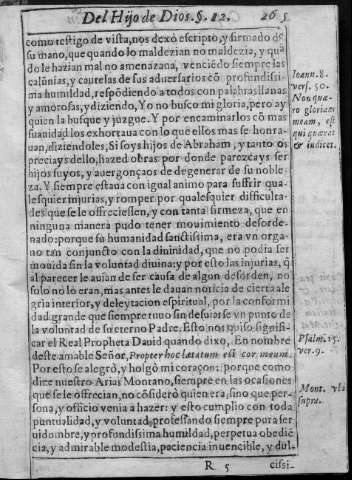 Del Hijo de Dios. §. 12. 265
como testigo de vista, nos dexó escripto, y firmado de
su mano, que quando lo maldezian no maldezia, y quã
do le hazian mal no amenazaua, venciẽdo siempre las
calũnias, y cautelas de sus aduersarios cõ profundissi-
ma humildad, respõdiendo a todos con palabras llanas
y amorosas, y diziendo, Yo no busco mi gloria, pero ay
quien la busque y juzgue. Y por encaminarlos cõ mas
suauidad los exhortaua con lo que ellos mas se honra-
uan, diziendoles, Si soys hijos de Abraham, y tanto os
preciays dello, hazed obras por donde parezcays ser
hijos suyos, y auergonçaos de degenerar de su noble
za. Y siempre estaua con igual animo para suffrir qua
lesquier injurias, y romper por qualesquier difficulta-
des que se le offreciessen, y con tanta firmeza, que en
ninguna manera pudo tener mouimiento desorde-
nado: porque su humanidad sanctissima, era vn orga-
no tan conjuncto con la diuinidad, que no podia ser
mouida sin la voluntad diuina: y por esto las injurias, q̃
al parecer le auian de ser causa de algun desorden, no
solo no lo eran, mas antes le dauan noticia de cierta ale
gria interior, y deleytacion espiritual, por la conformi
dad grande que siempre tuuo sin desuiarse vn punto de
la voluntad de su eterno Padre. Esto nos quiso signifi-
car el Real Propheta Dauid quando dixo, En nombre
deste amable Señor, Propter hoc lætatum est cor meum.
Por esto se alegró, y holgó mi coraçon: porque como
dize nuestro Arias Montano, siempre en las ocasiones
que se le offrecian, no cõsideró quien era, sino que per-
sona, y officio venia a hazer: y esto cumplio con toda
puntualidad, y voluntad, professando siempre pura ser
uidumbre, y profundissima humildad, perpetua obediẽ
cia, y admirable modestia, paciencia inuencible, y dul-
R 5 cissi-
Ioann. 8.
vers. 50.
Non quæ-
ro gloriam
meam, est
qui quærat
& iudicet.
Psalm. 15.
ver. 9.
Mont. vbi
supra.